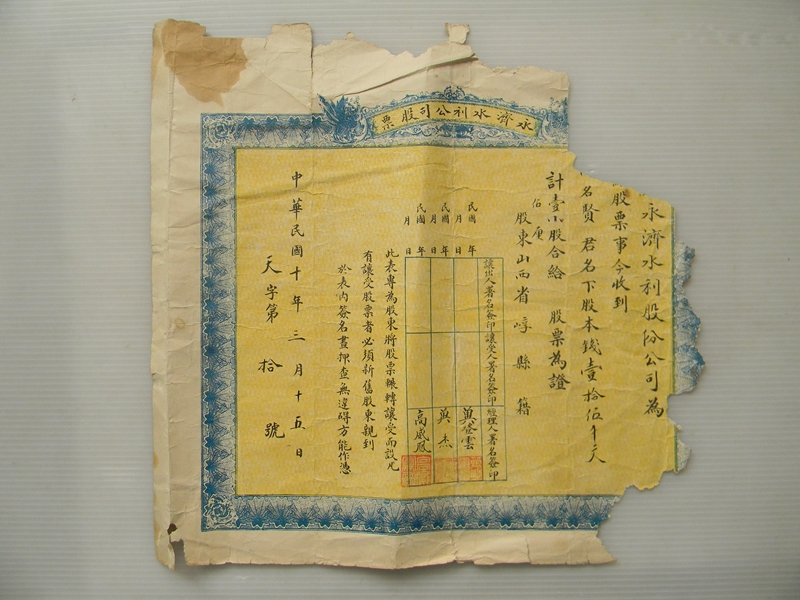 永濟水利公司股票
永濟水利股份公司為
股票事今收到
名賢 君名下股本錢壹拾伍千文
計壹小股合給 股票為證
股東山西省崞縣籍
讓出人署名簽印 讓受人署名簽印 經理人署名簽印
民國 年 月 日
民國 年 月 日
民國 年 月 日
吳登雲
吳杰
高威鳳
此表專為股東將股票輾轉讓受而設凡
有讓受股票者必須新舊股東親到
於表內簽名畫押查無違碍方能作憑
中華民國十年三月十五日
天字第拾號